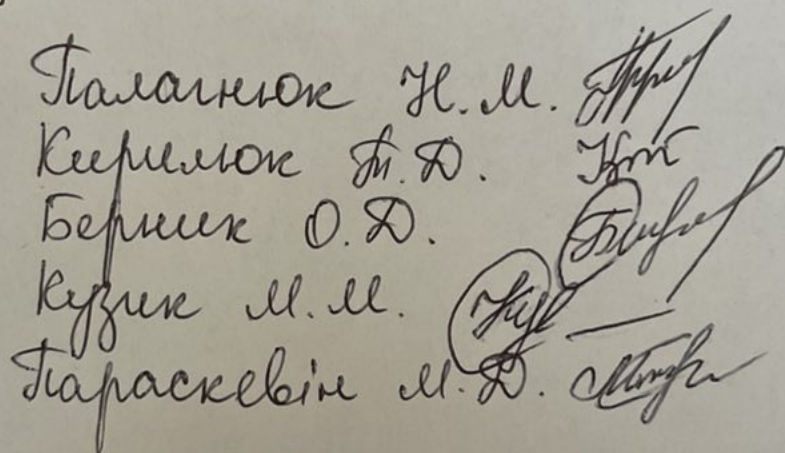 Палагнюк Н. М.
Кирилюк Т. Д.
Берник О. Д.
Кузик М. М.
Параскевін М. Д.